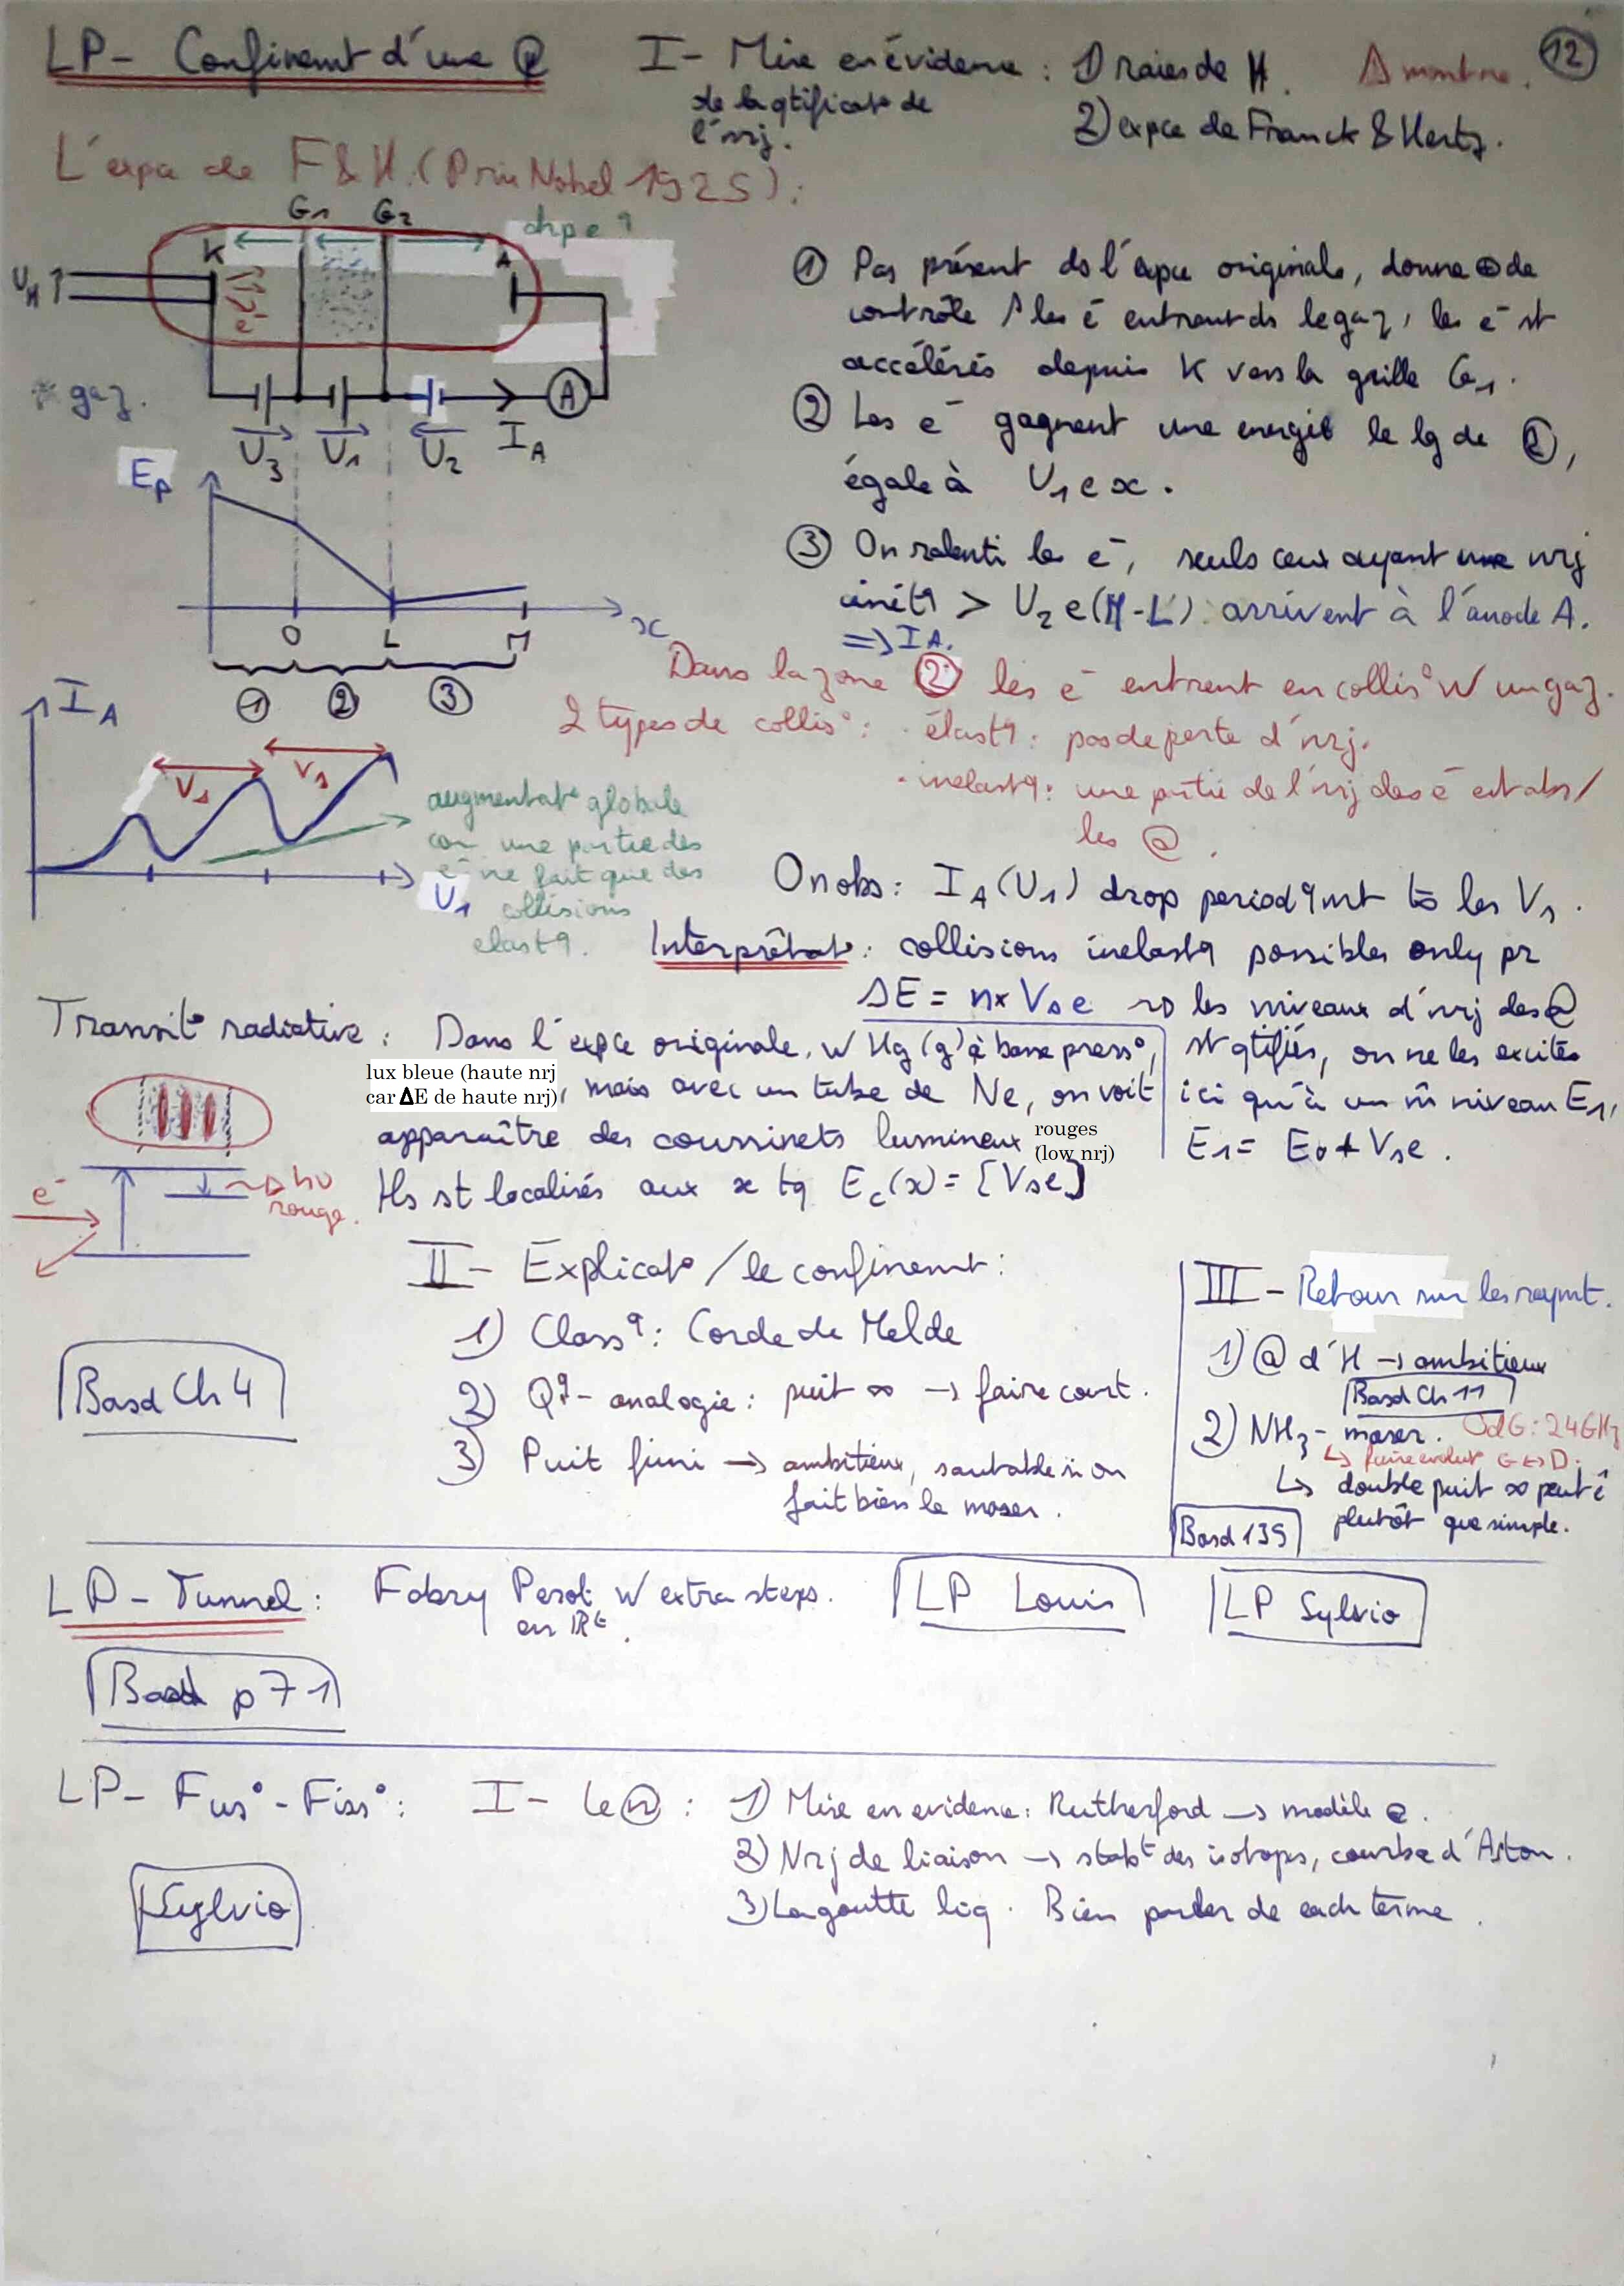 LP- Confinemt d'une @
I- Mise en évidence : 1) raies de H. Δ montrer.
12
de la qtificat° de
l'nrj.
2) expce de Franck & Hertz.
L'expce de F&H. (Prix Nobel 1925) :
G1 G2 chp e?
K A
UH e-
* gaz. A
U3 U1 U2 IA
① Pas présent ds l'expce originale, donne ⊕ de
contrôle / les e- entrant ds le gaz, les e- st
accélérés depuis K vers la grille G1.
② Les e- gagnent une energie le lg de ②,
égale à U1 e x.
③ On ralenti les e-, seuls ceux ayant une nrj
cinét9 > U2 e(M-L) arrivent à l'anode A.
=> IA.
Ep
O L M x
① ② ③
Dans la zone ② les e- entrent en collis° w un gaz.
2 types de collis° : · élast9 : pas de perte d'nrj.
- inelast9 : une partie de l'nrj des e- est abs /
les @.
IA
Vs Vs
U1
augmentat° globale
car une partie des
e- ne fait que des
collisions
elast9.
On obs : IA(U1) drop period9mt ts les Vs.
Interprétat° : collisions inelast9 possibles only pr
ΔE = n× Vs e ~> les niveaux d'nrj des @
st qtifiés, on ne les excite
ici qu'à un m̂ niveau E1,
E1 = E0 + Vs e.
Transit° radiative : Dans l'expce originale, w Hg(g) à basse press°,
lux bleue (haute nrj
car ΔE de haute nrj), mais avec un tube de Ne, on voit
apparaître des coussinets lumineux rouges
(low nrj)
Ils st localisés aux x tq Ec(x) = [Vs e]
e- ~> hν
rouge.
II- Explicat° / le confinemt :
1) Class9 : Corde de Melde
2) Q9- analogie : puit ∞ -> faire court.
3) Puit fini -> ambitieux, sautable si on
fait bien le maser.
Basd Ch 4
III- Retour sur les raymt.
1) @ d'H -> ambitieux
Basd Ch 11
2) NH3- maser. OdG : 24GHz
↳ faire evolut° G<->D.
↳ double puit ∞ peut ê
plutôt que simple.
Basd 135
LP- Tunnel : Fabry Perot w extra steps.
en IRt.
LP Louis
LP Sylvio
Basd p 71
LP- Fus°- Fiss° : I- le n : 1) Mise en evidence : Rutherford -> modèle @.
2) Nrj de liaison -> stabt des isotops, courbe d'Aston.
3) La goutte liq. Bien parler de each terme.
Sylvio